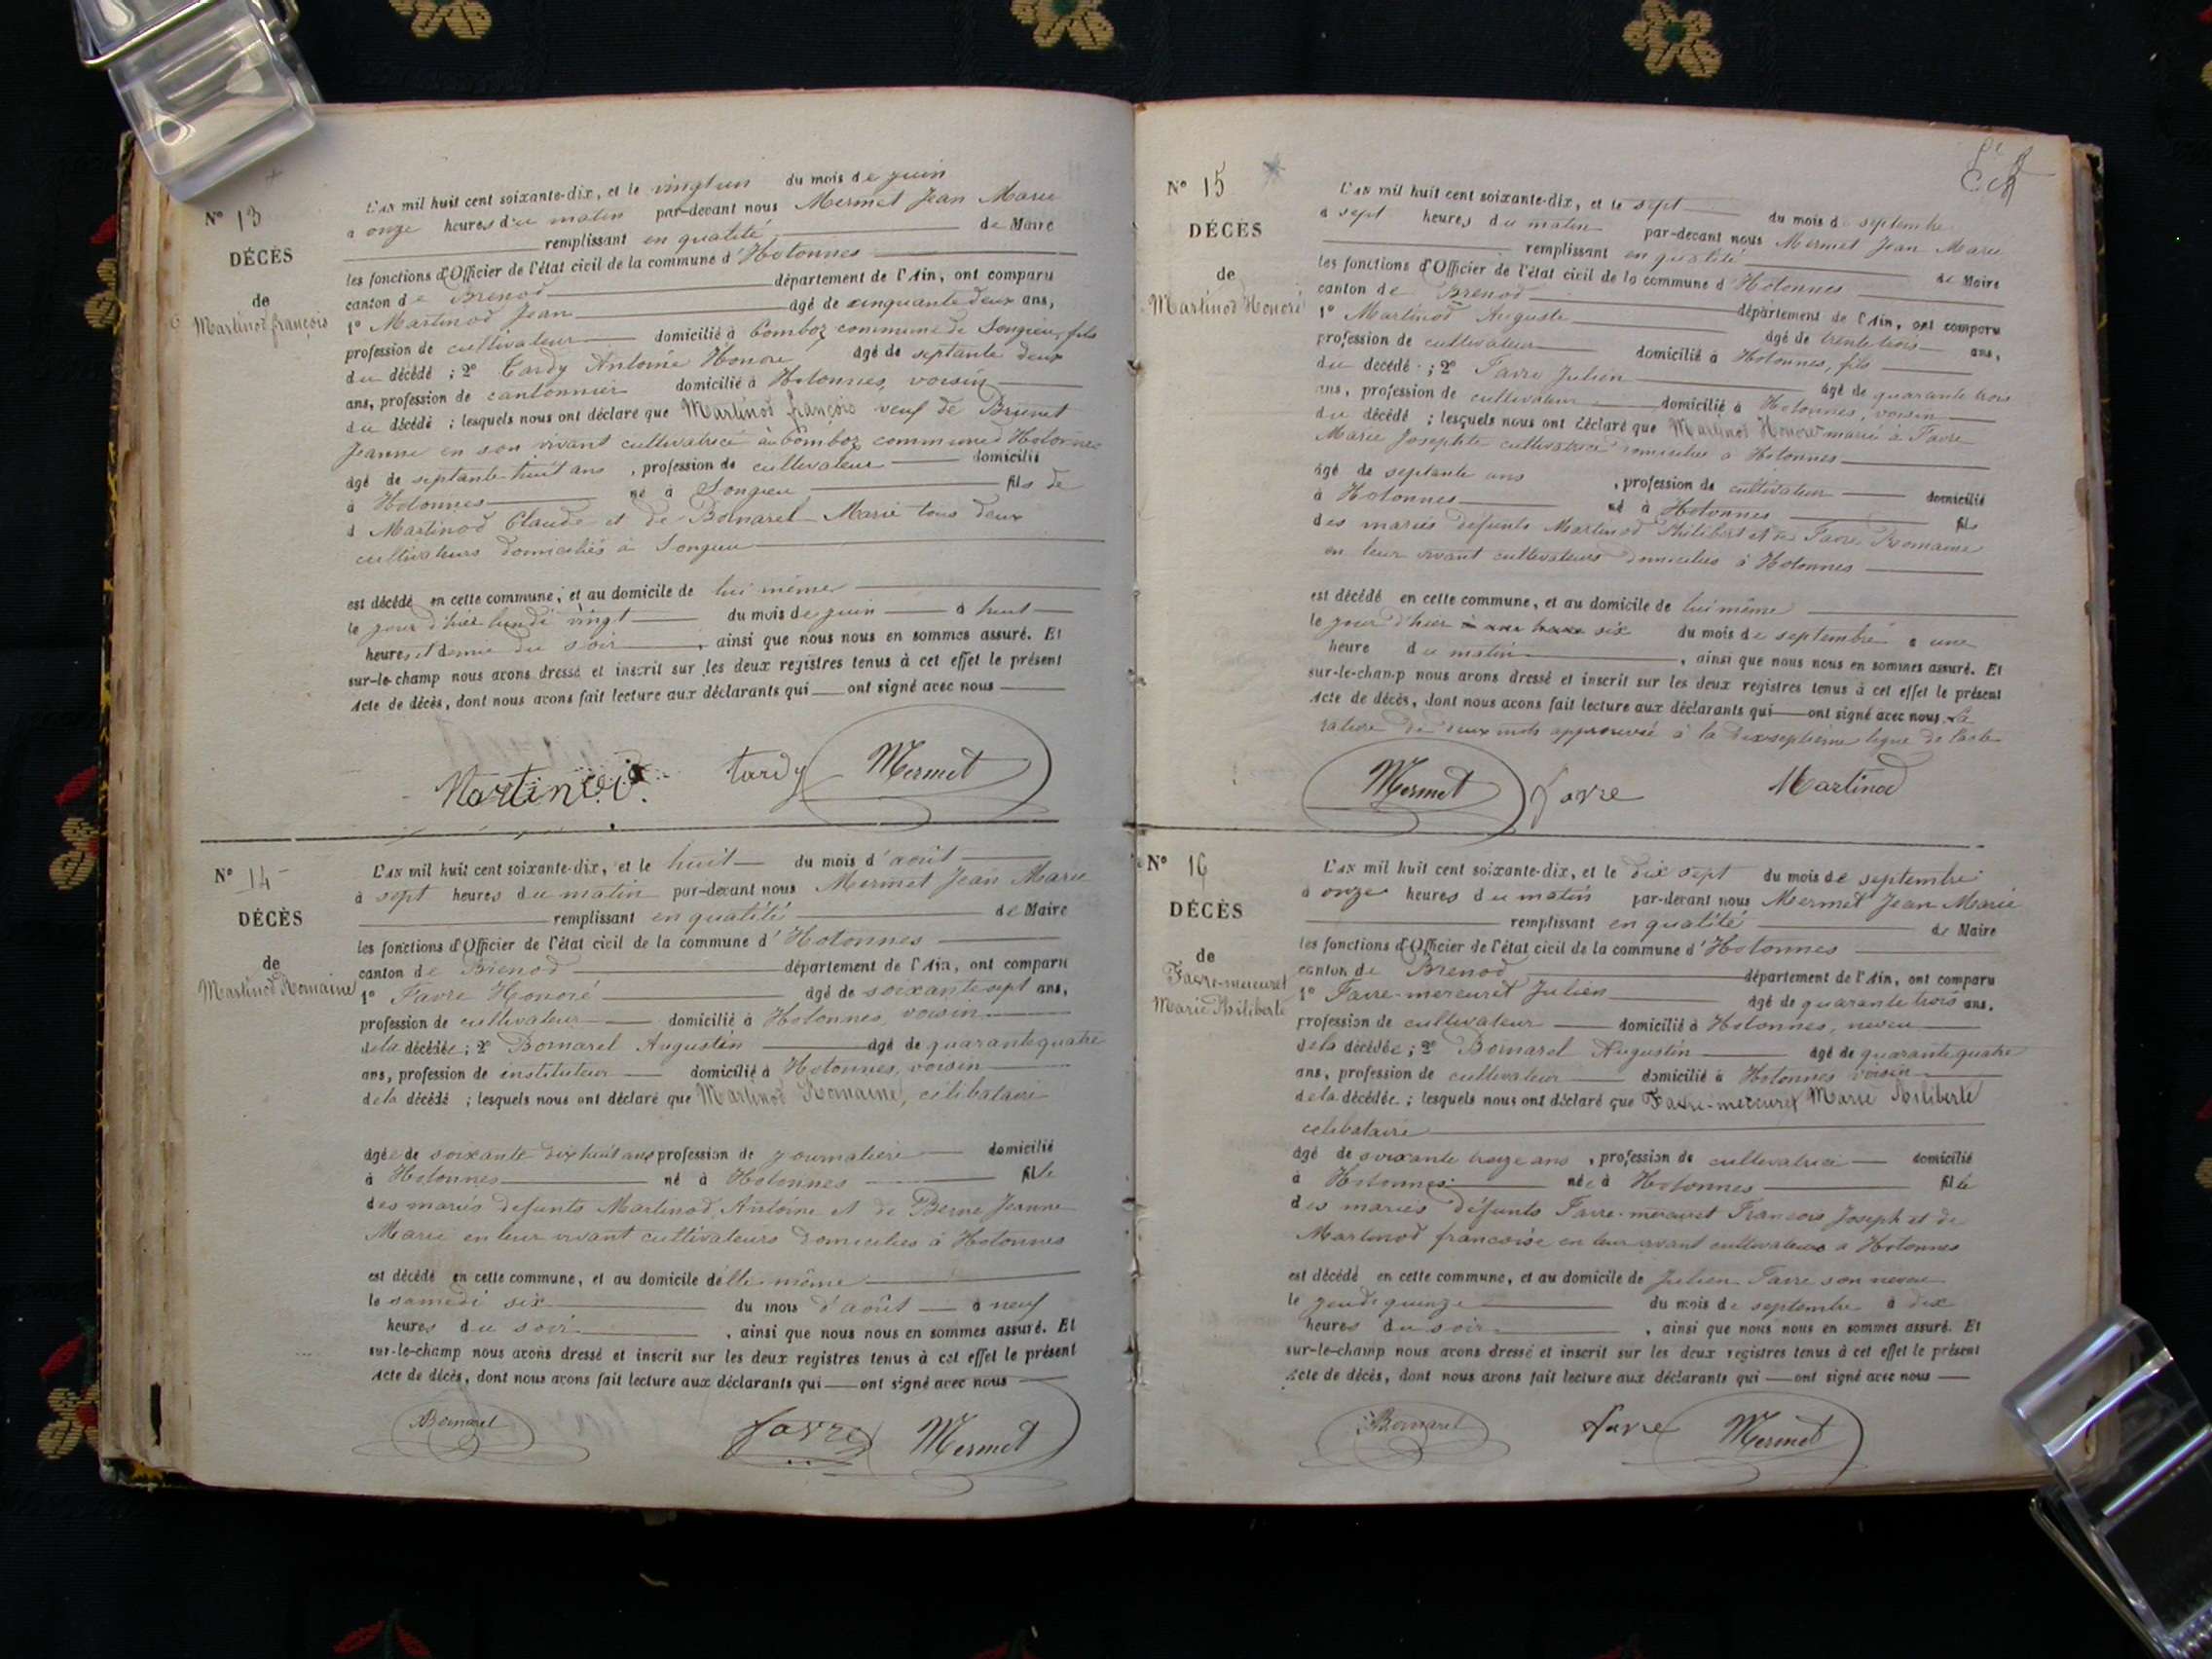 N° 13
DÉCÈS
de
Martinod françois
L'AN mil huit cent soixante-dix, et le vingt un du mois de juin
à onze heures du matin par-devant nous Mermet Jean Marie
remplissant en qualité de Maire
les fonctions d'Officier de l'état civil de la commune d'Hotonnes
canton de Brenod département de l'Ain, ont comparu
1° Martinod Jean âgé de cinquante deux ans,
profession de cultivateur domicilié à Bomboz commune de Songieu, fils
du décédé ; 2° Tardy Antoine Honoré âgé de septante deux
ans, profession de cantonnier domicilié à Hotonnes, voisin
du décédé ; lesquels nous ont déclaré que Martinod françois veuf de Brunet
Jeanne en son vivant cultivatrice à Bomboz commune d'Hotonnes
âgé de septante huit ans, profession de cultivateur domicilié
à Hotonnes né à Songieu fils de
d Martinod Claude et de Bomarel Marie tous deux
cultivateurs domiciliés à Songieu
est décédé en cette commune, et au domicile de lui même
le jour d'hier lundi vingt du mois de juin à huit
heures et demie du soir, ainsi que nous nous en sommes assuré. Et
sur-le-champ nous avons dressé et inscrit sur les deux registres tenus à cet effet le présent
Acte de décès, dont nous avons fait lecture aux déclarants qui ont signé avec nous
Martinod tardy Mermet
N° 14
DÉCÈS
de
Martinod Romaine
L'AN mil huit cent soixante-dix, et le huit du mois d'août
à sept heures du matin par-devant nous Mermet Jean Marie
remplissant en qualité de Maire
les fonctions d'Officier de l'état civil de la commune d'Hotonnes
canton de Brenod département de l'Ain, ont comparu
1° Favre Honoré âgé de soixante sept ans,
profession de cultivateur domicilié à Hotonnes, voisin
de la décédée ; 2° Bomarel Augustin âgé de quarante quatre
ans, profession de instituteur domicilié à Hotonnes, voisin
de la décédé ; lesquels nous ont déclaré que Martinod Romaine, célibataire
âgée de soixante dix huit ans profession de journalière domicilié
à Hotonnes né à Hotonnes fille
des mariés défunts Martinod Antoine et de Berne Jeanne
Marie en leur vivant cultivateurs domiciliés à Hotonnes
est décédé en cette commune, et au domicile d'elle même
le samedi six du mois d'août à neuf
heures du soir, ainsi que nous nous en sommes assuré. Et
sur-le-champ nous avons dressé et inscrit sur les deux registres tenus à cet effet le présent
Acte de décès, dont nous avons fait lecture aux déclarants qui ont signé avec nous
Bomarel favre Mermet
N° 15
DÉCÈS
de
Martinod Honoré
L'AN mil huit cent soixante-dix, et le sept du mois de septembre
à sept heures du matin par-devant nous Mermet Jean Marie
remplissant en qualité de Maire
les fonctions d'Officier de l'état civil de la commune d'Hotonnes
canton de Brenod département de l'Ain, ont comparu
1° Martinod Auguste âgé de trente trois ans,
profession de cultivateur domicilié à Hotonnes, fils
du décédé ; 2° Favre Julien âgé de quarante trois
ans, profession de cultivateur domicilié à Hotonnes, voisin
du décédé ; lesquels nous ont déclaré que Martinod Honoré marié à Favre
Marie Josephte cultivatrice domiciliée à Hotonnes
âgé de septante ans, profession de cultivateur domicilié
à Hotonnes né à Hotonnes fils
des mariés défunts Martinod Philibert et de Favre Romaine
en leur vivant cultivateurs domiciliés à Hotonnes
est décédé en cette commune, et au domicile de lui même
le jour d'hier six du mois de septembre à une
heure du matin, ainsi que nous nous en sommes assuré. Et
sur-le-champ nous avons dressé et inscrit sur les deux registres tenus à cet effet le présent
Acte de décès, dont nous avons fait lecture aux déclarants qui ont signé avec nous. La
rature de deux mots approuvée à la dix septième ligne de l'acte
Mermet favre Martinod
N° 16
DÉCÈS
de
Favre-mercuret
Marie Philiberte
L'AN mil huit cent soixante-dix, et le dix sept du mois de septembre
à onze heures du matin par-devant nous Mermet Jean Marie
remplissant en qualité de Maire
les fonctions d'Officier de l'état civil de la commune d'Hotonnes
canton de Brenod département de l'Ain, ont comparu
1° Favre-mercuret Julien âgé de quarante trois ans,
profession de cultivateur domicilié à Hotonnes, neveu
de la décédée ; 2° Bomarel Augustin âgé de quarante quatre
ans, profession de cultivateur domicilié à Hotonnes voisin
de la décédée ; lesquels nous ont déclaré que Favre-mercuret Marie Philiberte
célibataire
âgé de soixante treize ans, profession de cultivatrice domicilié
à Hotonnes née à Hotonnes fille
des mariés défunts Favre-mercuret François Joseph et de
Martinod françoise en leur vivant cultivateurs à Hotonnes
est décédé en cette commune, et au domicile de Julien Favre son neveu
le jeudi quinze du mois de septembre à dix
heures du soir, ainsi que nous nous en sommes assuré. Et
sur-le-champ nous avons dressé et inscrit sur les deux registres tenus à cet effet le présent
Acte de décès, dont nous avons fait lecture aux déclarants qui ont signé avec nous
Bomarel favre Mermet